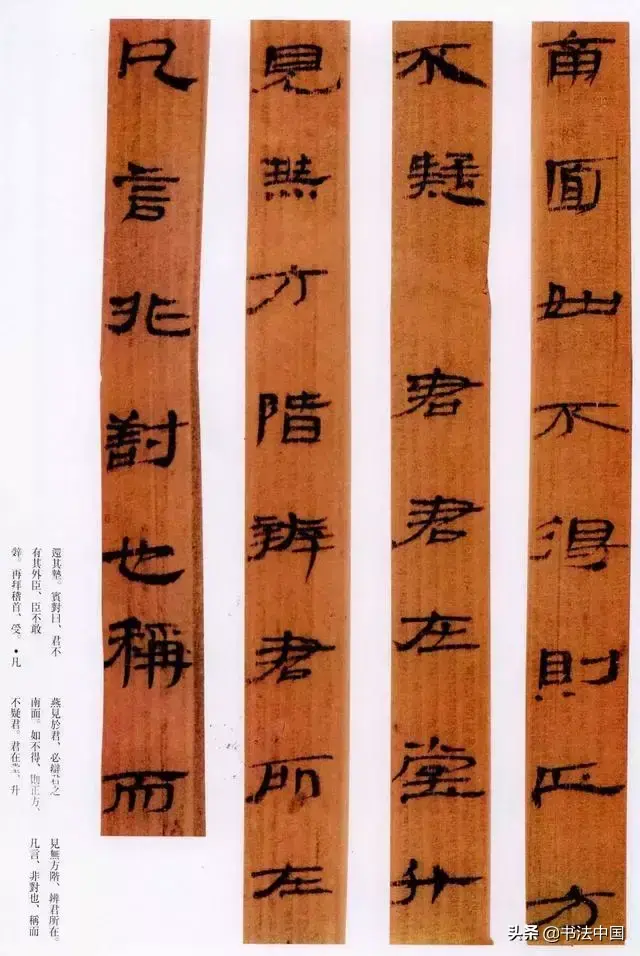 南面如不得則正方
不疑 君君在堂升
見無方階辨君所在
凡言非對也稱而
還其摯。賓對曰、君不
有其外臣、臣不敢
辤。再拜稽首、受。•凡
燕見於君、必辯君之
南面。如不得、則正方、
不疑君。君在堂、升
見無方階、辨君所在。
凡言、非對也、稱而
头条 @书法中国